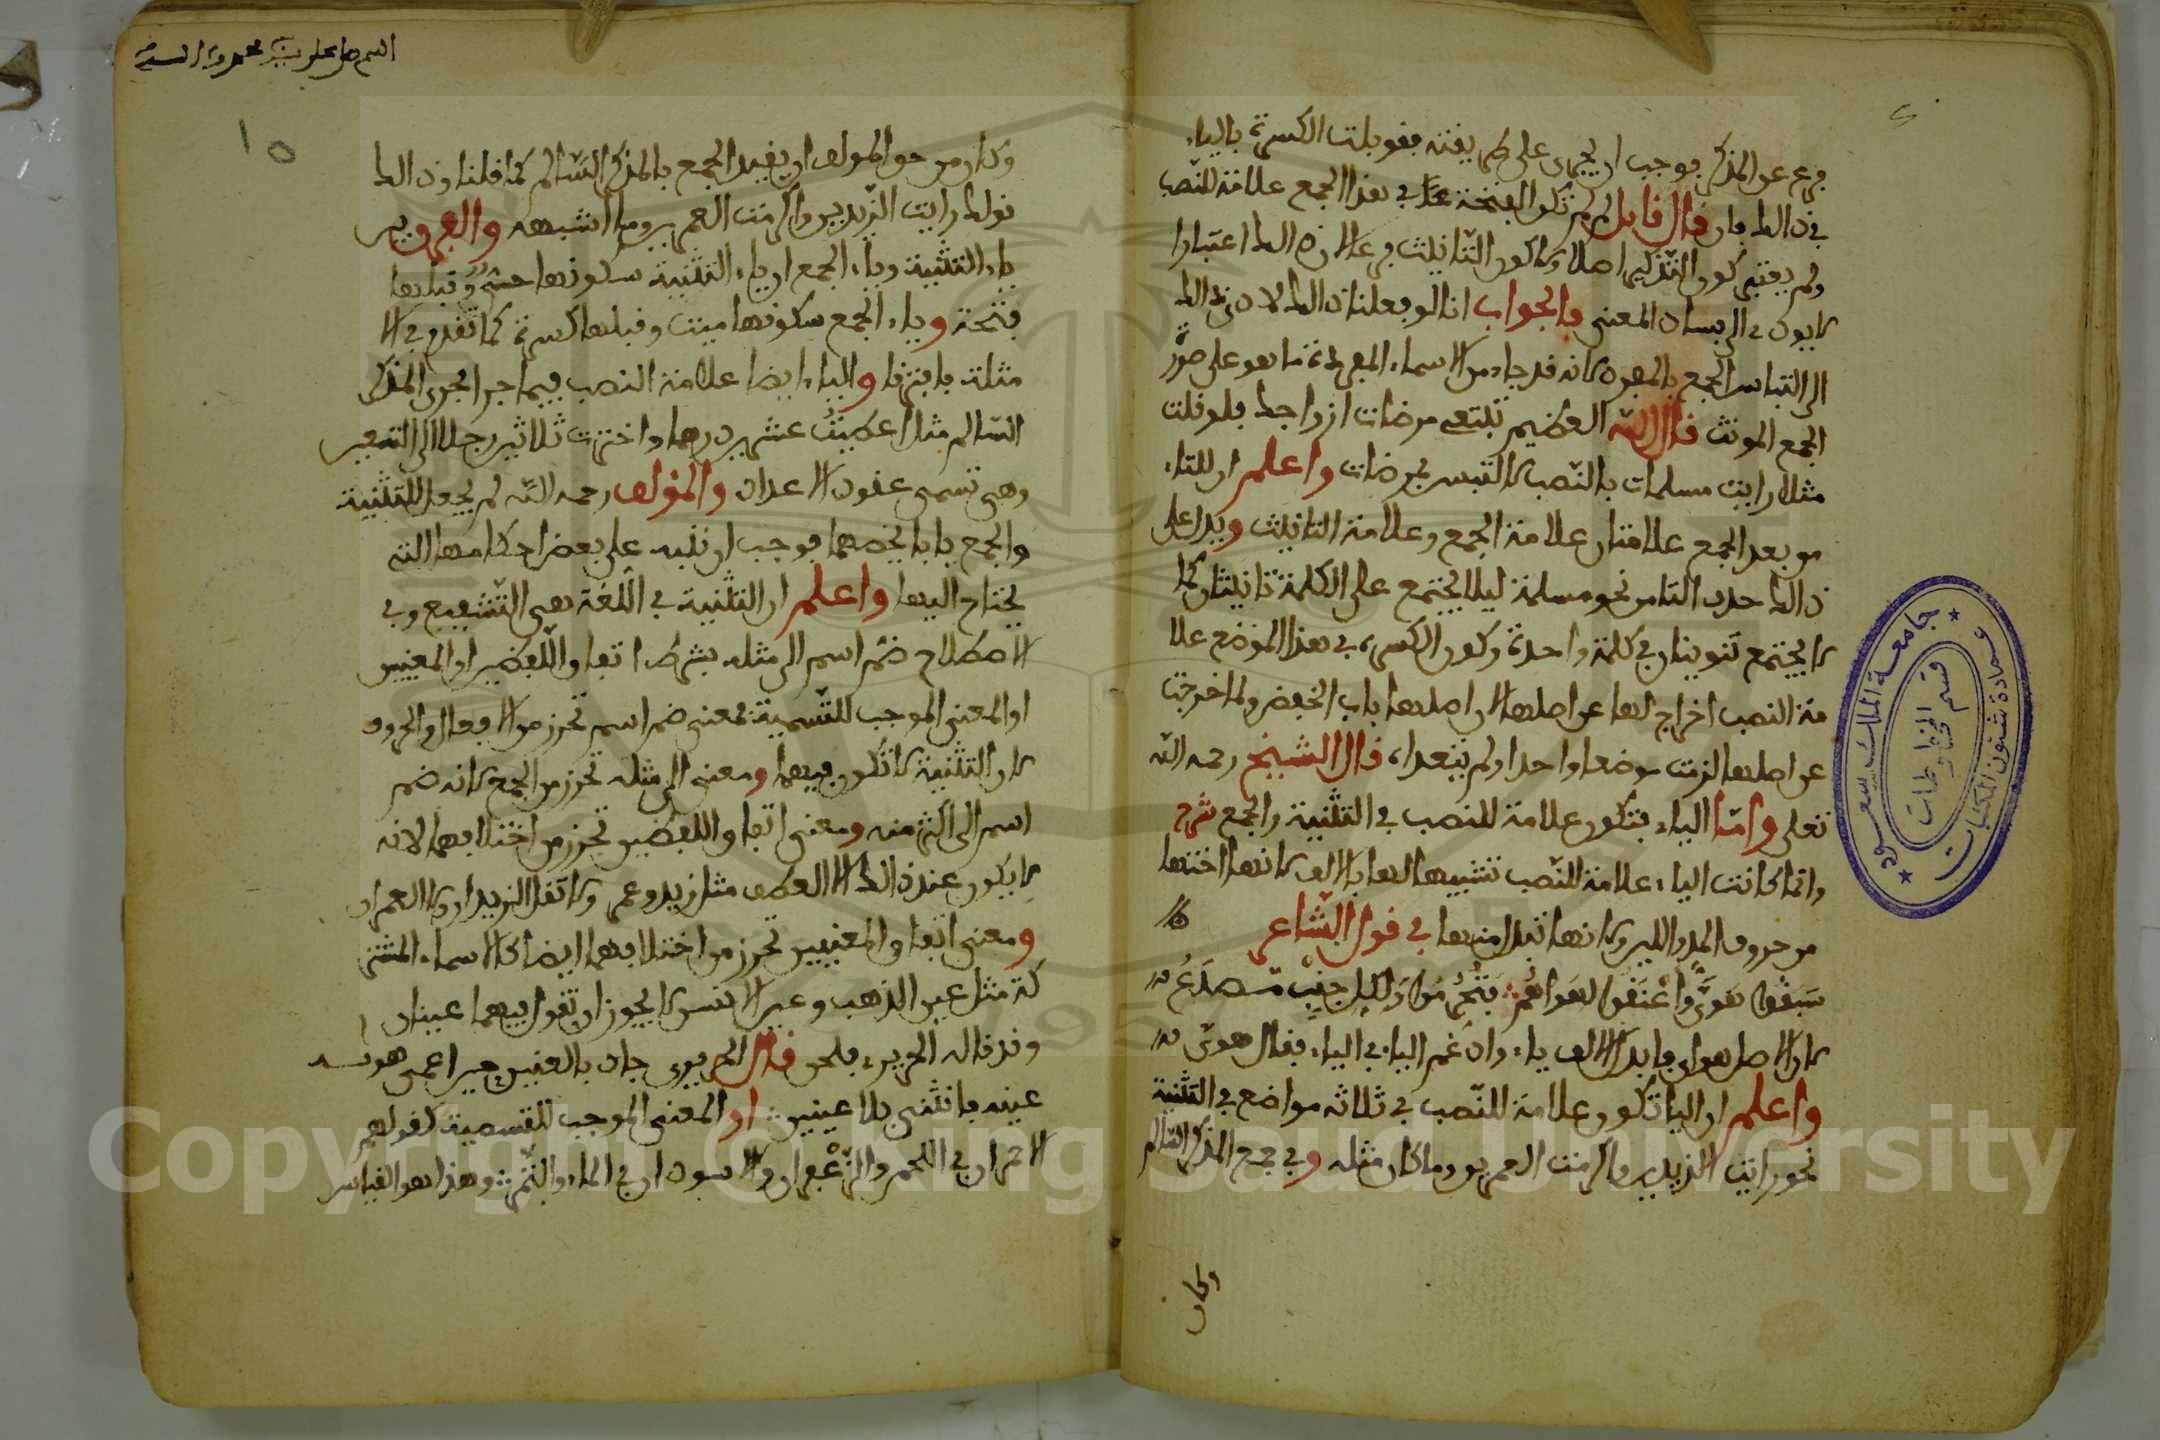 فرع عن المذكر فوجب ان يجرى على طريقته فقوبلت الكسرة بالياء
في ذالك فان قال قايل لم لم تكن الفتحة في هذا الجمع علامة للنصب
ولم يعتبر كون التذكير اصلا ولا كون التانيث فرعا لان ذالك اعتبارا
لا يودي الى فساد المعنى فالجواب انا لو فعلنا ذالك لادى ذالك
الى التباس الجمع بالمفرد لانه قد جاء من الاسماء المفردة ما هو على صورة
الجمع المونث قال الله العظيم تبتغي مرضات ازواجك فلو قلت
مثلا رايت مسلمات بالنصب لالتبس بمرضات واعلم ان للتاء
من بعد الجمع علامتان علامة الجمع وعلامة التانيث ويدل على
ذالك حذف التا من نحو مسلمة ليلا يجتمع على الكلمة تانيثان كما
لا يجتمع تنوينان في كلمة واحدة وكون الكسرة في هذا الموضع علا
مة النصب اخراج لها عن اصلها لان اصلها باب الخفض ولما خرجت
عن اصلها لزمت موضعا واحدا ولم تتعداه قال الشيخ رحمه الله
تعلى واما الياء فتكون علامة للنصب في التثنية والجمع شرح
وانما كانت الياء علامة للنصب تشبيها لها بالالف لانها اختها
من حروف المد واللين ولانها تبدل منها في قول الشاعر
سبقوا هوي واعنقوا لهواهم فتخرموا ولكل جنب مصرع
لان الاصل هواي فابدل الالف ياء وادغم الياء في الياء فقال هوي
واعلم ان اليا تكون علامة للنصب في ثلاثة مواضع في التثنية
نحو رايت الزيدين واكرمت العمرين وما كان مثله وفي جمع المذكر السالم
وكان من حق المولف ان يقيد الجمع بالمذكر السالم كما قلنا وذالك
قولك رايت الزيدين واكرمت العمرين وما اشبهه والفرق بين
ياء التثنية وياء الجمع ان ياء التثنية سكونها حي وقبلها
فتحة وياء الجمع سكونها ميت وقبلها كسرة كما تقدم في الا
مثلة والياء ايضا علامة النصب فيما جرا مجرى المذكر
السالم مثل اعطيت عشرين درهما واخترت ثلاثين رجلا الى التسعين
وهي تسمى عقود الاعداد والمؤلف رحمه الله لم يجعل للتثنية
والجمع بابا يخصهما فوجب ان ننبه على بعض احكامها التي
يحتاج اليها واعلم ان التثنية في اللغة هي التشفيع وفي
الاصطلاح ضم اسم الى مثله بشرط اتفاق اللفظين او المعنيين
او المعنى الموجب للتسمية فمعنى ضم اسم تحرز من الافعال والحروف
لان التثنية لا تكون فيهما ومعنى الى مثله تحرز من الجمع لانه ضم
اسم الى اكثر منه ومعنى اتفاق اللفظين تحرز من اختلافهما لانه
لا يكون عند ذالك الا العطف مثل زيد وعمر ولا تقل الزيدان ولا العمران
ومعنى اتفاق المعنيين تحرز من اختلافهما ايضا كالاسماء المشتر
كة مثل عين الذهب وعين الشمس لا يجوز ان تقول فيهما عينان
وقد قاله الحريري فلحن قال الحريري جاد بالعين حين اعمى هواه
عينه فانثنى بلا عينين او المعنى الموجب للتسمية كقولهم
الاحمران في اللحم والزعفران والاسودان في الماء والتمر وهذا هو القياس
جامعة الملك سعود
عمادة شئون المكتبات
قسم المخطوطات
Copyright © King Saud University
1957